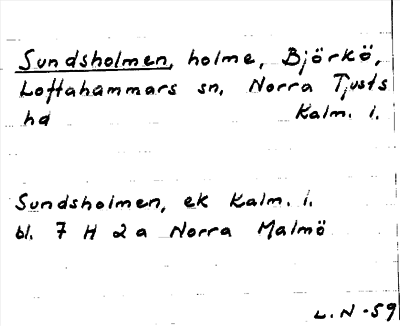 Sundsholmen, holme, Björkö,
Loftahammars sn, Norra Tjusts
hd Kalm. l.
Sundsholmen, ek Kalm. l.
bl. 7 H 2 a Norra Malmö
L.N-59